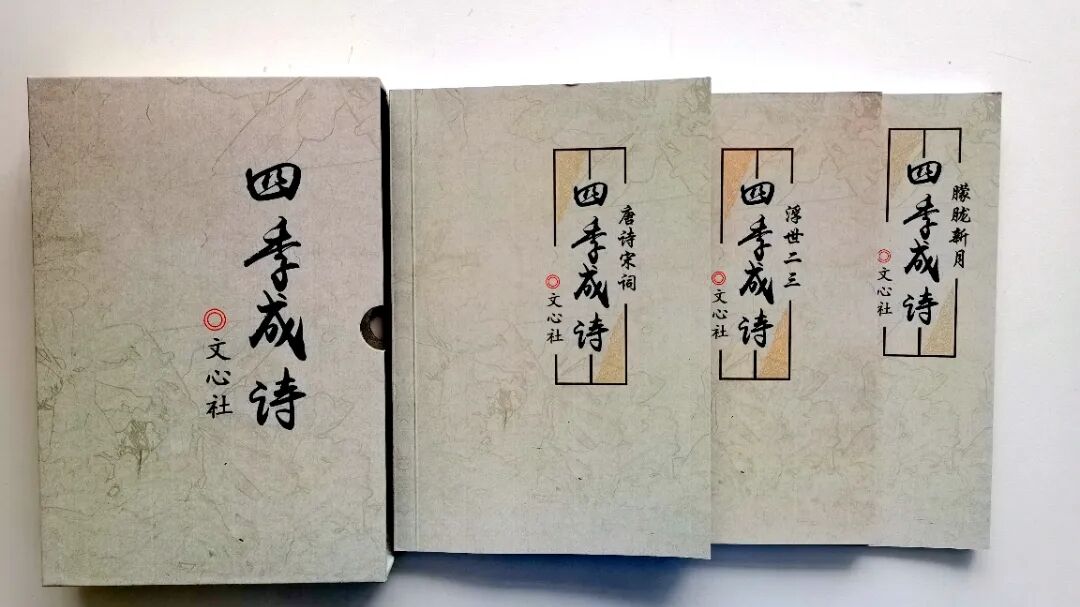 四季成诗
文心社
唐诗宋词
四季成诗
文心社
浮世二三
四季成诗
文心社
朦胧新月
四季成诗
文心社